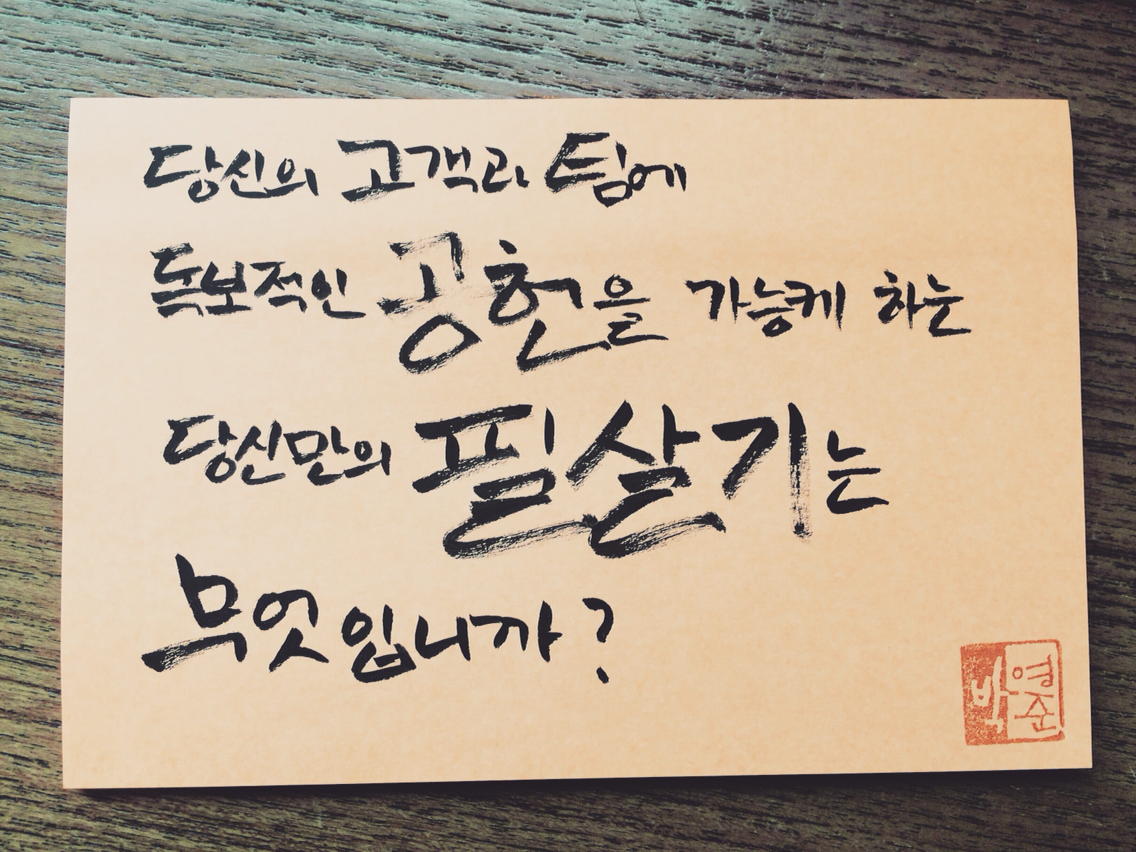 당신의 고객과 팀에
독보적인 공헌을 가능케 하는
당신만의 필살기는
무엇입니까?
박영준